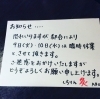 お知らせ
恐れいりますが、都合により
7日(火)8日(水)は臨時休業
とさせて頂きます。
ご迷惑をおかけいたしますが
どうぞよろしくお願い申し上げます。